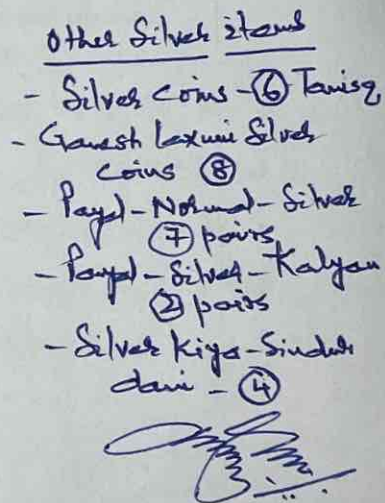 Other Silver items
- Silver Coins - 6 Tanisq
- Ganesh Laxmi Silver
coins 8
- Payal - Normal - Silver
7 pairs
- Payal - Silver - Kalyan
2 pairs
- Silver Kiya - Sindur
dani - 4